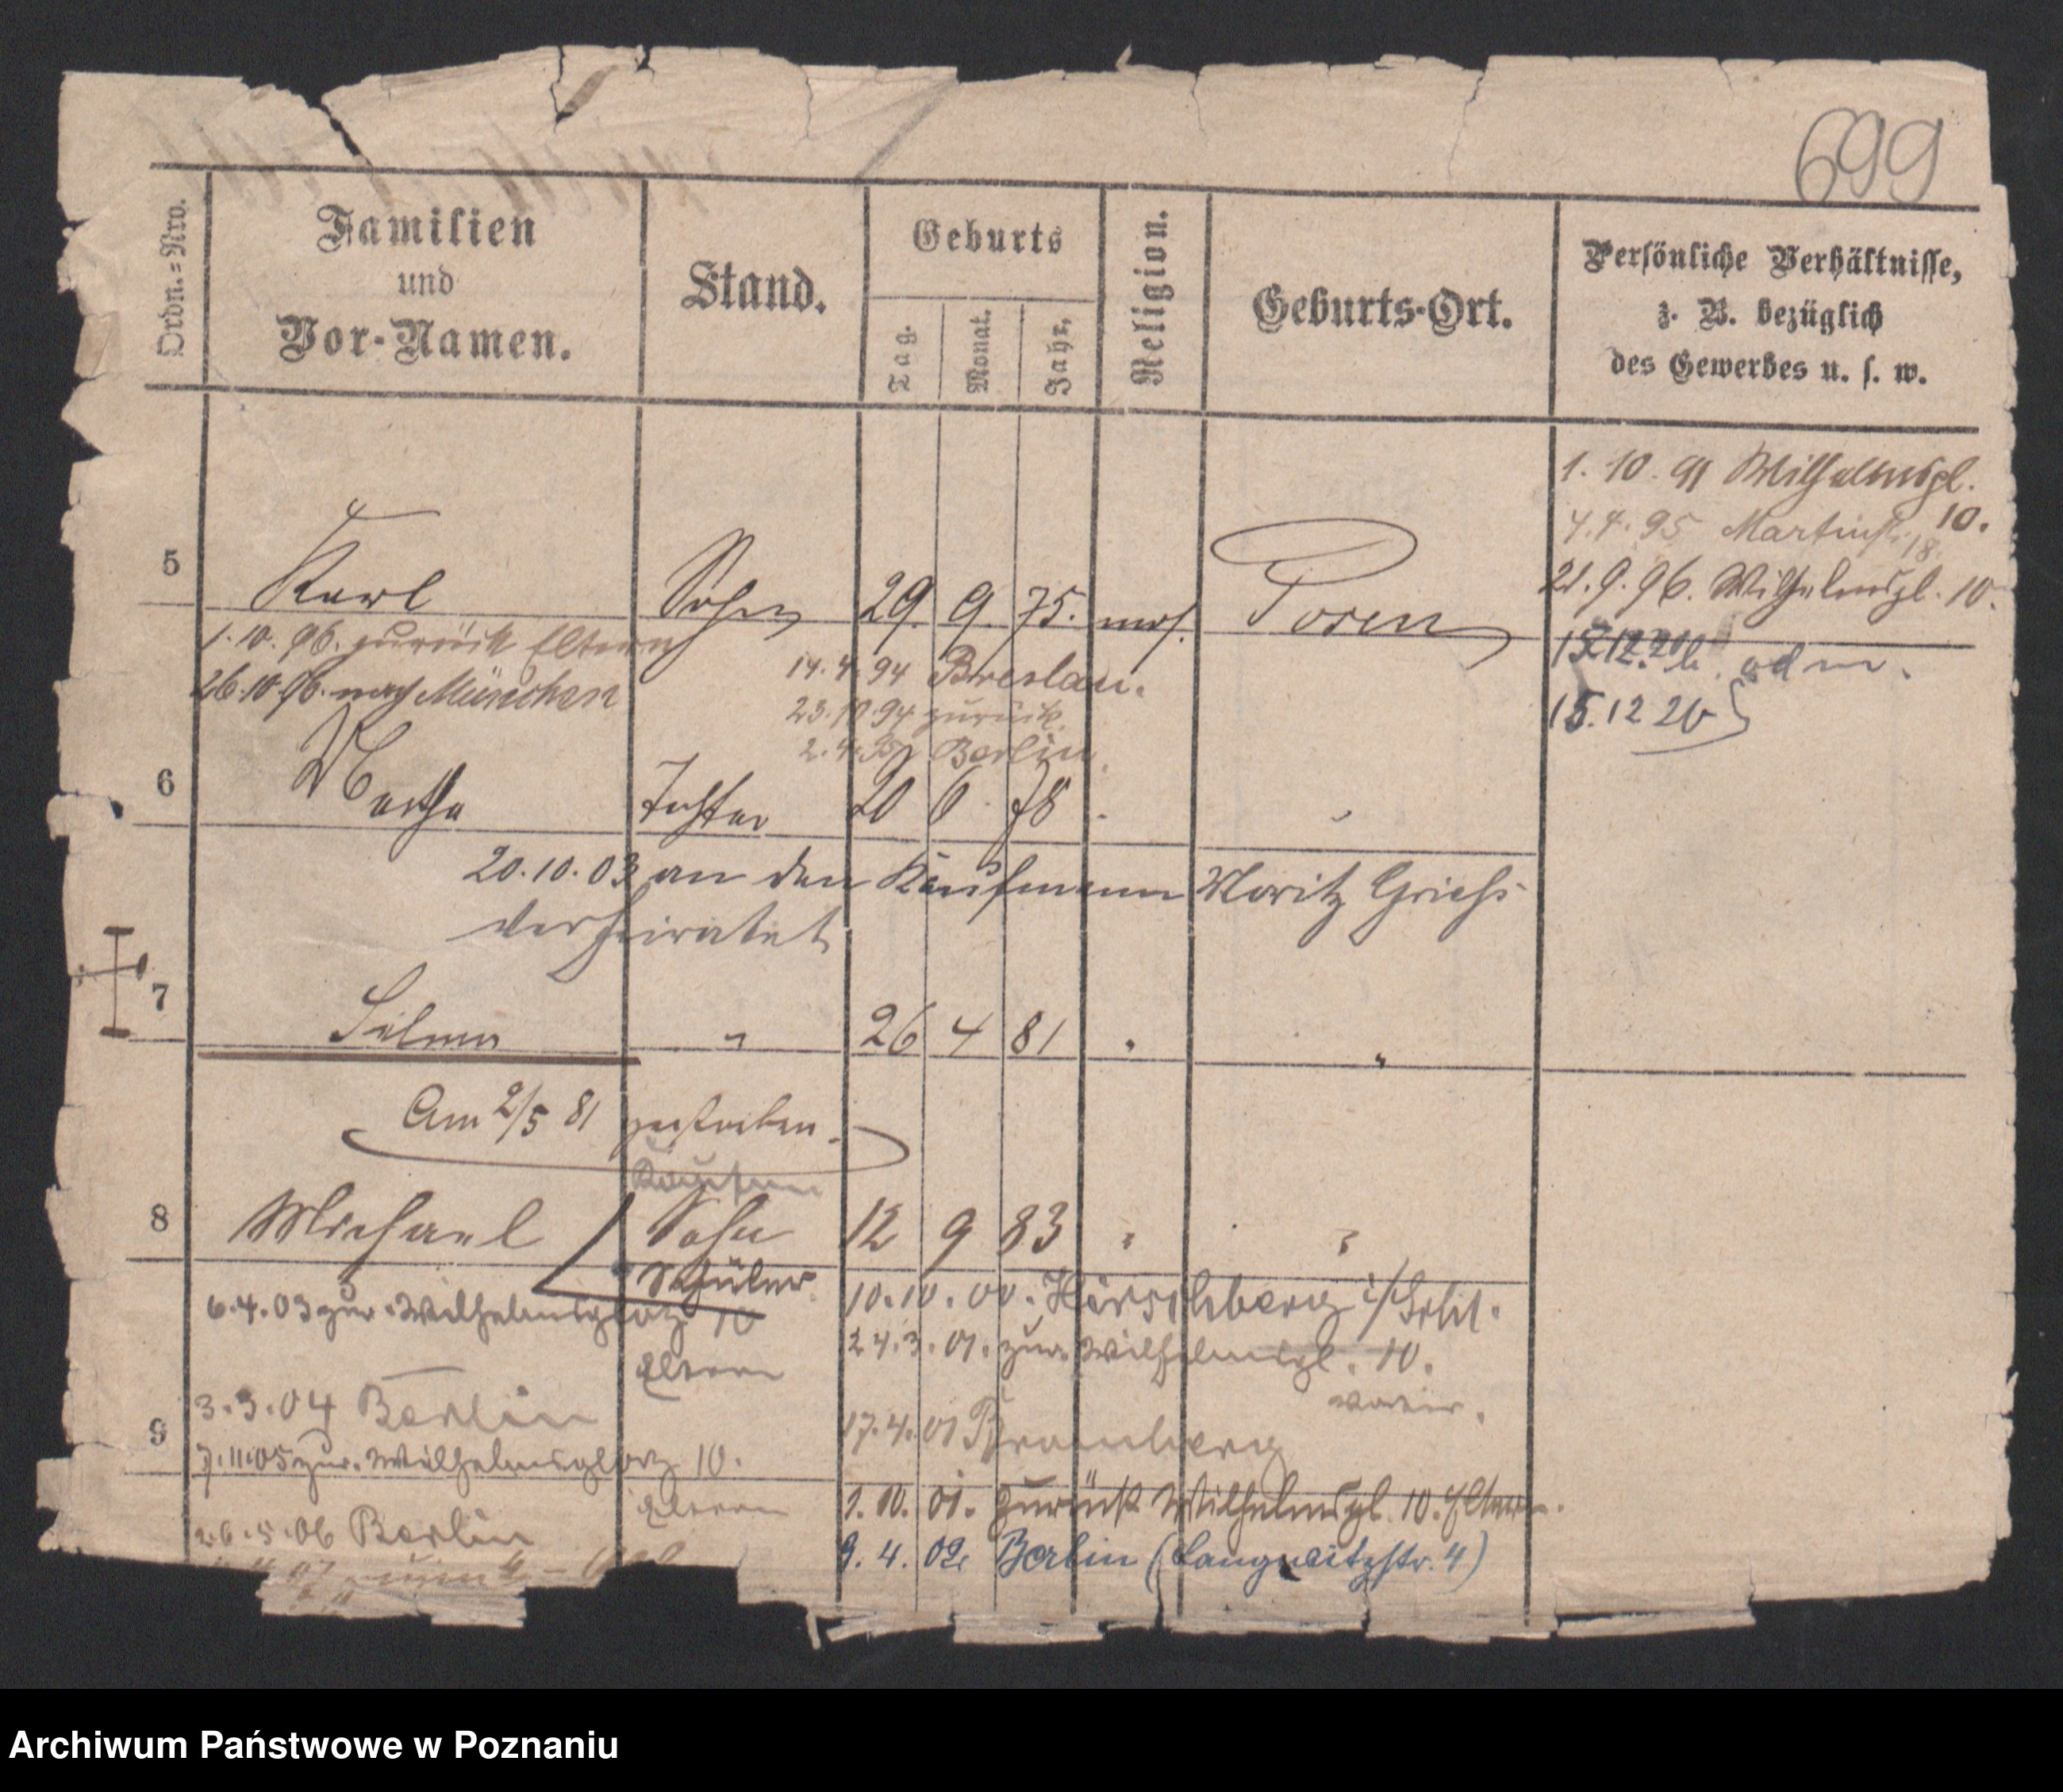 699
Ordn.=Nro.
Familien
und
Vor-Namen.
Stand.
Geburts
Tag.
Monat.
Jahr.
Religion.
Geburts-Ort.
Persönliche Verhältnisse,
z. B. bezüglich
des Gewerbes u. s. w.
1. 10. 91 Wilhelmspl. 10.
4.4.95 Martinstr. 18.
21.9.96. Wilhelmspl. 10.
15.12.20
5 Karl Sohn 29. 9. 75. mos. Posen
1.10.96. zurück Eltern
26.10.96. nach München
14.4.94 Breslau.
23.10.94 zurück
Berlin.
6 Martha Tochter 20 6 78
20.10.03 an den Kaufmann Moritz Griess
verheiratet
7 Selma " 26 4 81 " "
Am 2/5 81 gestorben.
Kaufm
8 Michael Sohn 12 9 83 " "
Schüler
6.4.03 zur. Wilhelmsplatz 10
Eltern
10.10.00. Hirschberg i/Schl.
24.3.01. zur. Wilhelmspl. 10.
3.3.04 Berlin
17.4.01 Bromberg
9
7.11.05 zur. Wilhelmsplatz 10.
Eltern
1.10.01. zurück Wilhelmspl. 10. Eltern.
26.5.06 Berlin
9. 4. 02 Berlin (Langwitzstr. 4)
Archiwum Państwowe w Poznaniu